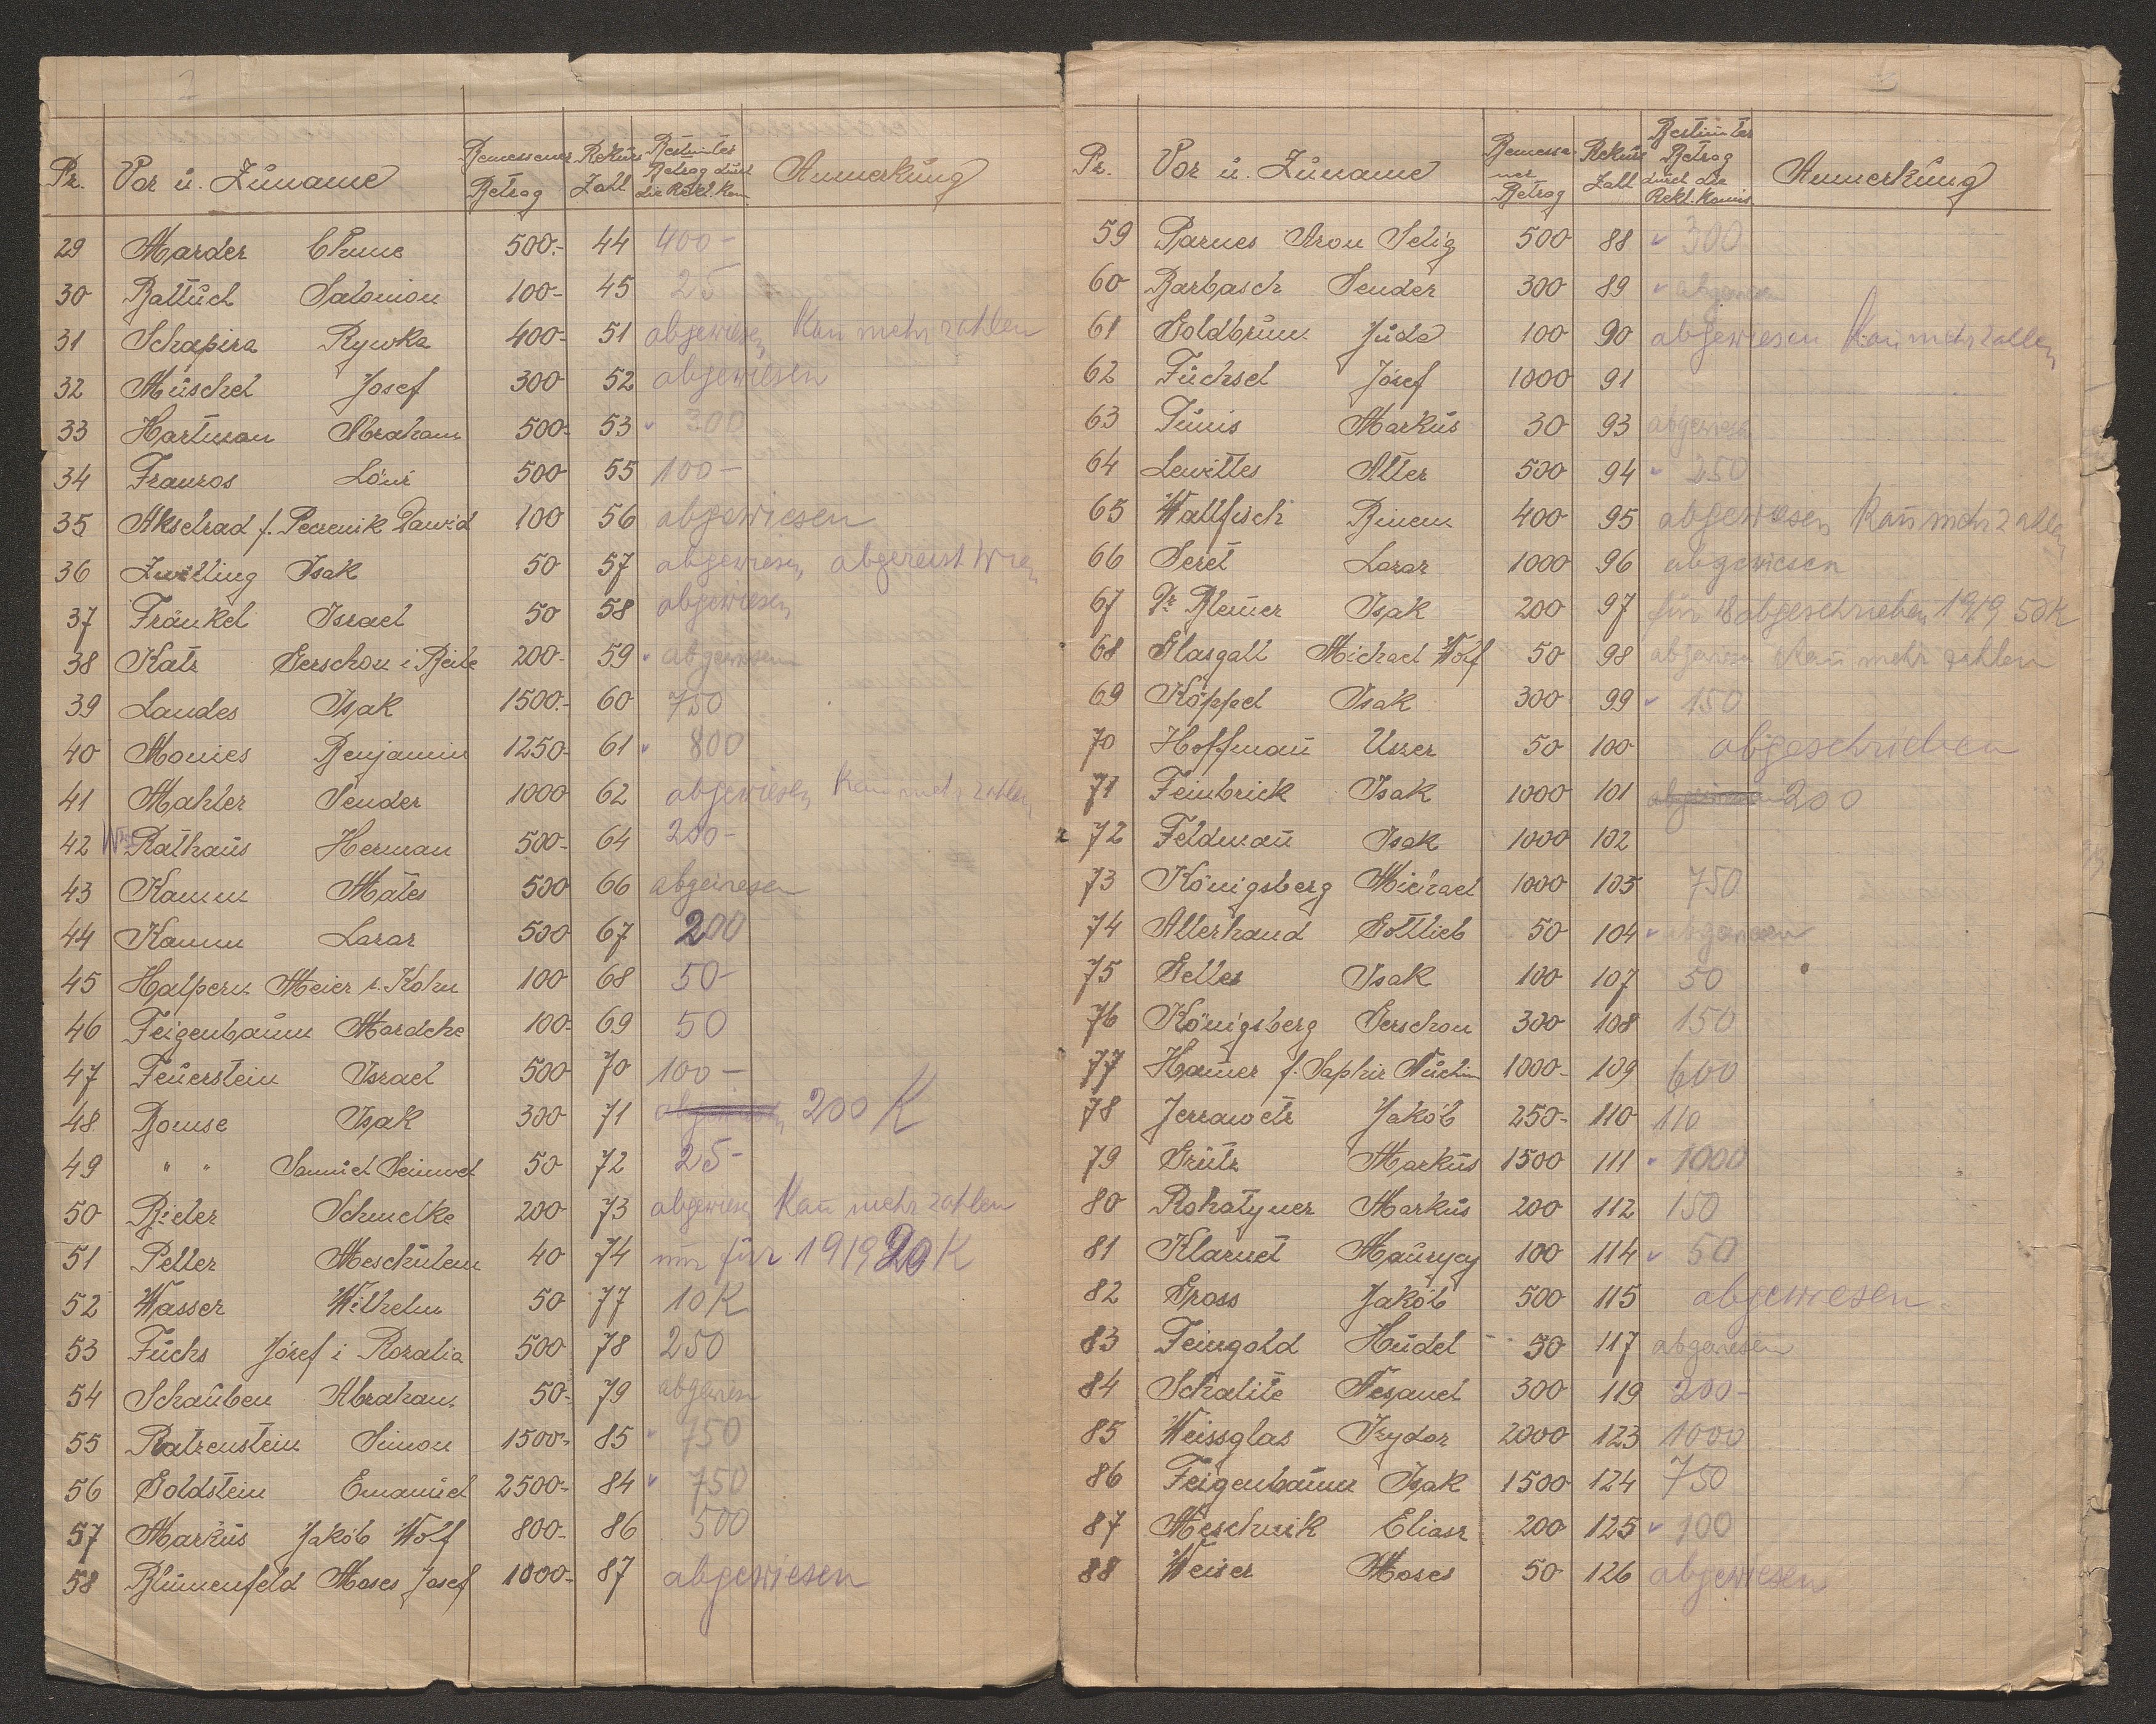 2
Pr. Vor u. Zuname Bemessener Betrag Rekurs Zahl Bestimter Betrag durch die Rekl. Kom Anmerkung
29 Marder Chune 500.- 44 400-
30 Battuch Salomon 100- 45 25
31 Schapira Rywka 400- 51 abgewiesen Kan mehr zahlen
32 Muschel Josef 300 52 abgewiesen
33 Hartman Abraham 500- 53 300
34 Franzos Löwi 500 55 100-
35 Akselrad f. Dawid 100 56 abgewiesen
36 Zwilling Isak 50 57 abgewiesen abgereist Wien
37 Fränkel Israel 50 58 abgewiesen
38 Katz Gerschon i Beile 200- 59 abgewiesen
39 Landes Isak 1500.- 60 750
40 Monies Benjamin 1250- 61 800
41 Mahler Sender 1000 62 abgewiesen Kan mehr zahlen
42 Rathaus Herman 500- 64 200-
43 Kamm Mates 500 66 abgewiesen
44 Kamm Lazar 500 67 200
45 Halpern Meier r. Kohn 100 68 50-
46 Feigenbaum Mardche 100- 69 50
47 Feuerstein Israel 500 70 100-
48 Bomse Isak 300 71 200 K
49 " " Samuel Seinwel 50 72 25-
50 Bieler Schmelke 200 73 abgewiesen Kan mehr zahlen
51 Peller Meschulem 40 74 nur für 1919 20 K
52 Wasser Wilhelm 50 77 10 K
53 Fuchs Józef i Rozalia 500 78 250
54 Schauben Abraham 50- 79 abgewiesen
55 Ratzenstein Simon 1500- 85 750
56 Goldstein Emanuel 2500- 84 750
57 Markus Jakób Wolf 800- 86 500
58 Blumenfeld Moses Josef 1000- 87 abgewiesen
Pr. Vor u. Zuname Bemessener Betrag Rekurs Zahl Bestimter Betrag durch die Rekl. Komis Anmerkung
59 Parnes Aron Selig 500 88 300
60 Barbasch Sender 300 89 abgewiesen
61 Goldbrun Juda 100 90 abgewiesen Kan mehr zahlen
62 Fuchsel Jósef 1000 91
63 Tunis Markus 30 93 abgewiesen
64 Lewittes Alter 500 94 250
65 Wallfisch Binem 400 95 abgewiesen Kan mehr zahlen
66 Seret Lazar 1000 96 abgewiesen
67 Dr Blemer Isak 200 97 für 18 abgeschrieben 1919 50 K
68 Glasgall Michael Wolf 50 98 abgewiesen Kan mehr zahlen
69 Köppel Isak 300 99 150
70 Hoffman Uszer 50 100 abgeschrieben
71 Feinbrick Isak 1000 101 200
72 Feldman Isak 1000 102
73 Königsberg Michael 1000 103 750
74 Allerhand Gottlieb 50 104 abgewiesen
75 Geller Isak 100 107 50
76 Königsberg Gerschon 300 108 150
77 Hamer f. Saphir Nuchim 1000- 109 600
78 Jerzawetz Jakób 250- 110 110
79 Grütz Markus 1500 111 1000
80 Rohatyner Markus 200 112 150
81 Klarnet Maurycy 100 114 50
82 Gross Jakób 500 115 abgewiesen
83 Feingold Hudel 50 117 abgewiesen
84 Schalite Nesanel 300 119 200-
85 Weissglas Izydor 2000 123 1000
86 Feigenbaum Isak 1500 124 750
87 Meschnik Eliasz 200 125 100
88 Weiser Moses 50 126 abgewiesen